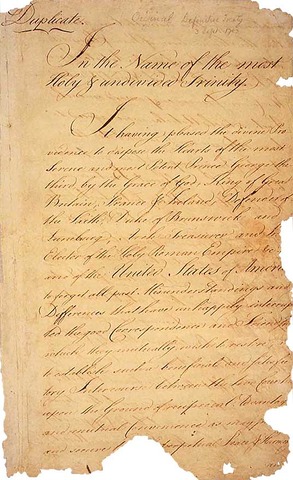 Duplicate.
Original Definitive Treaty
3 Sept. 1783
In the Name of the most
Holy & undivided Trinity.
It having pleased the divine Pro
vidence to dispose the Hearts of the most
Serene and most Potent Prince George the
third, by the Grace of God, King of Great
Britain, France & Ireland, Defender of
the Faith, Duke of Brunswick and
Lunebourg, Arch Treasurer and
Elector of the Holy Roman Empire &c
and of the United States of Amer
to forget all past Misunderstandings and
Differences that have unhappily interrup
ted the good Correspondence and Friendsh
which they mutually wish to restore
to establish such a beneficial and satisfac
tory Intercourse between the two Count
upon the Ground of reciprocal Advantages
and mutual Convenience as may
and secure perpetual Peace & Harmo